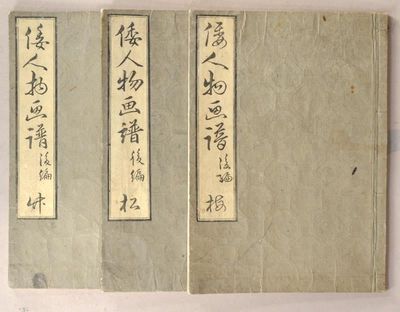 倭人物画譜 後編 竹
倭人物画譜 後編 松
倭人物画譜 後編 梅